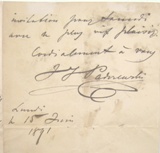 invitation pour Samedi
avec le plus vif plaisir
Cordialement à vous
J J Paderewski
Lundi
le 15 Juin
1891